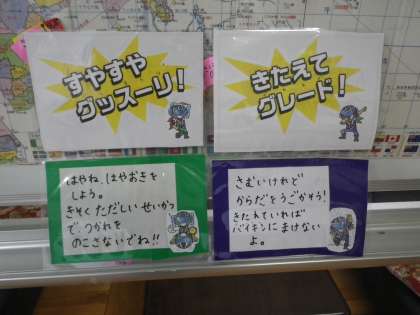 すやすや
グッスーリ！
きたえて
グレード！
はやね、はやおきを
しよう。
きそくただしいせいかつ
で、つかれを
のこさないでね!!
さむいけれど
からだをうごかそう！
きたえていれば
バイキンにまけない
よ。